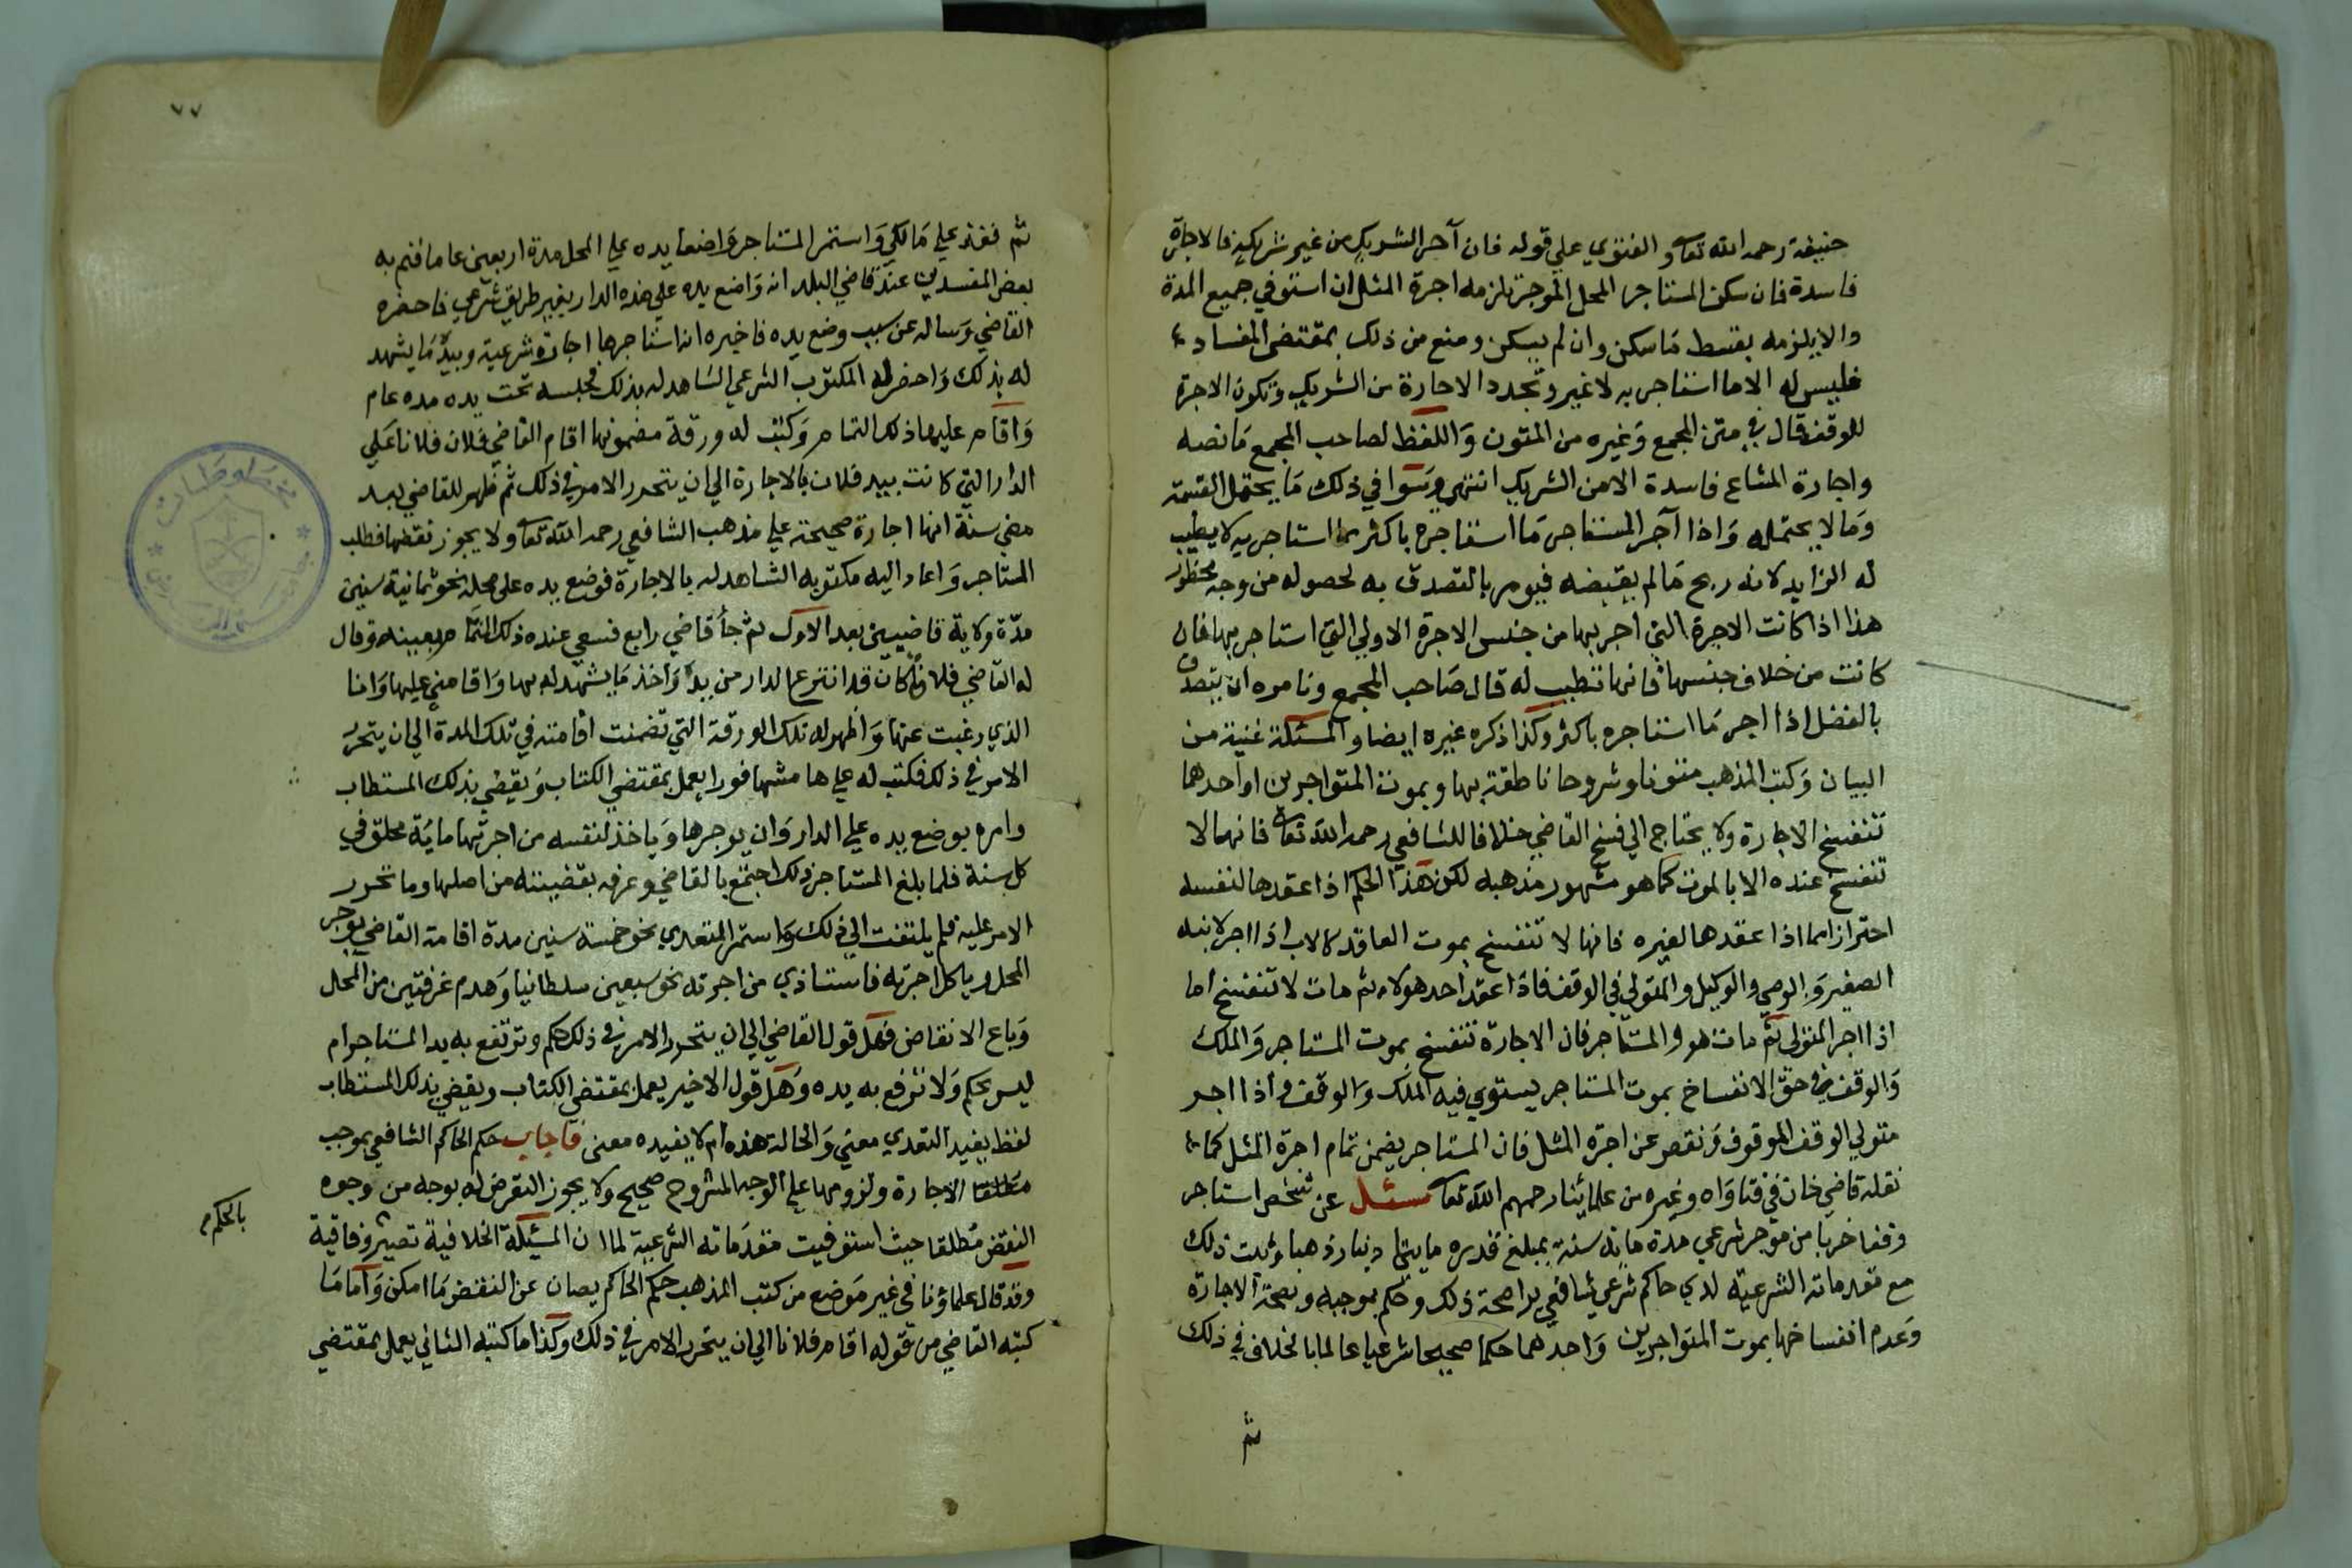 حنيفة رحمه الله تعا والفتوي علي قوله فان آجر الشريك من غير شريكه فالاجارة
فاسدة فان سكن المستاجر المحل الموجر تلزمه اجرة المثل ان استوفي جميع المدة
والا يلزمه بقسط مَا سكن وان لم يسكن ومنع من ذلك بمقتضي الفساد
فليس له الا ما استاجر به لا غير وتجدد الاجارة من الشريك وتكون الاجرة
للوقف قال في متن المجمع وَغيره من المتون وَاللفظ لصاحب المجمع مَا نصه
واجارة المشاع فاسدة الا من الشريك انتهي وسَوا في ذلك مَا يحتمل القسمة
وَمَا لا يحتمله وَاذا آجر المستاجر مَا استاجره باكثر مما استاجر به لا يطيب
له الزايد لانه ربح مَا لم يقبضه فيومر بالتصدق به لحصوله من وجه محظور
هذا اذا كانت الاجرة التي اجر بها من جنس الاجرة الاولي التي استاجر بها فان
كانت من خلاف جنسها فانها تطيب له قال صَاحب المجمع ونامره ان يتصدق
بالفضل اذا اجر مَا استاجره باكثر وكذا ذكره غيره ايضا والمسئلة غنية من
البيان وَكتب المذهب متونا وشروحا ناطقة بها وبموت المتواجرين او احدهما
تنفسخ الاجارة ولا يحتاج الي فسخ القاضي خلافا للشافعي رحمه الله تعا فانها لا
تنفسخ عنده الا بالموت كما هو مشهور مذهبه لكن هذا الحكم اذا عقدها لنفسه
احترازا مما اذا عقدها لغيره فانها لا تنفسخ بموت العاقد كالاب اذا اجر لابنه
الصغير وَالوصي والوكيل والمتولي في الوقف فاذا عقد احد هولاء ثم مات لا تنفسخ اما
اذا اجر المتولي ثم مات هو والمستاجر فان الاجارة تنفسخ بموت المستاجر وَالملك
وَالوقف في حق الانفساخ بموت المستاجر يستوي فيه الملك والوقف واذا اجر
متولي الوقف الموقوف وَنقص عن اجرة المثل فان المستاجر يضمن تمام اجرة المثل كما
نقله قاضي خان في فتاوَاه وغيره من علمائنا رحمهم الله تعا سئل عن شخص استاجر
وقفا خربا من موجر شرعي مدة ماية سنة بمبلغ قدره مايتا دينار ذهبا وثبت ذلك
مع مقدماته الشرعية لدي حاكم شرعي شافعي يرا صحة ذلك وحكم بموجبه وبصحة الاجارة
وَعدم انفساخها بموت المتواجرين وَاحدهما حكما صحيحا شرعيا عالما بالخلاف في ذلك
ثم
٧٧
ثم نفذ علي مَالكي وَاستمر المستاجر وَاضعا يده علي المحل مدة اربعين عاما فنم به
بعض المفسدين عند قاضي البلد انه وَاضع يده علي هذه الدار بغير طريق شرعي فاحضره
القاضي وَساله عن سبب وضع يده فاخبره انه استاجرها اجارة شرعية وبيده مَا يشهد
له بذلك وَاحضر له المكتوب الشرعي الشاهد له بذلك فحبسه تحت يده مده عام
وَاقام عليها ذلك التمام وَكتب له ورقة مضمونها اقام القاضي فلان فلانا عَلي
الدار التي كانت بيد فلان بالاجارة الي ان يتحرر الامر في ذلك ثم ظهر للقاضي بعد
مضي سنة انها اجارة صحيحة علي مذهب الشافعي رحمه الله تعا ولا يجوز نقضها فطلب
المستاجر وَاعاد اليه مكتوبه الشاهد له بالاجارة فوضع يده على محله نحو ثمانية سنين
مدّة ولاية قاضيين بعد الاول ثم جأ قاضي رابع فسعي عنده ذلك التمام بعينه وقال
له القاضي فلان كان قد انتزع الدار من يده وَاخذ مَا يشهد له بها وَاقامني عليها وَانا
الذي رغبت عنها وَاظهر له تلك الورقة التي تضمنت اقامته في تلك المدة الي ان يتحرر
الامر في ذلك فكتب له علي هامشها فورا يعمل بمقتضي الكتاب وَيقضي بذلك المستطاب
وامره بوضع يده علي الدار وَان يوجرها وَياخذ لنفسه من اجرتها ماية محلق في
كل سنة فلما بلغ المستاجر ذلك اجتمع بالقاضي وعرفه بقضيته من اصلها وما تحرر
الامر عليه فلم يلتفت الي ذلك وَاستمر المتعدي نحو خمسة سنين مدة اقامة القاضي يوجر
المحل وياكل اجرته فاستاذي من اجرته نحو سبعين سلطانيا وَهدم غرفتين من المحل
وَباع الانقاض فهل قول القاضي الي ان يتحرر الامر في ذلك حكم وترتفع به يد المستاجر ام
ليس بحكم وَلا ترفع به يده وَهل قول الاخير يعمل بمقتضي الكتاب ويقضي بذلك المستطاب
لفظ يفيد التعدي معني وَالحالة هذه ام لا يفيده معني فاجاب حكم الحاكم الشافعي بموجب
مطلقا الاجارة ولزومها علي الوجه المشروح صحيح ولا يجوز التعرض له بوجه من وجوه
النقض مُطلقا حيث استوفيت مقدمَاته الشرعية لما ان المسئلة الخلافية تصير وفاقية
بالحكم م
وقد قال علماؤنا في غير مَوضع من كتب المذهب حكم الحاكم يصان عن النقض مَا امكن وَامَا مَا
كتبه القاضي من قوله اقام فلانا الي ان يتحرر الامر في ذلك وكذا ما كتبه الثاني يعمل بمقتضي